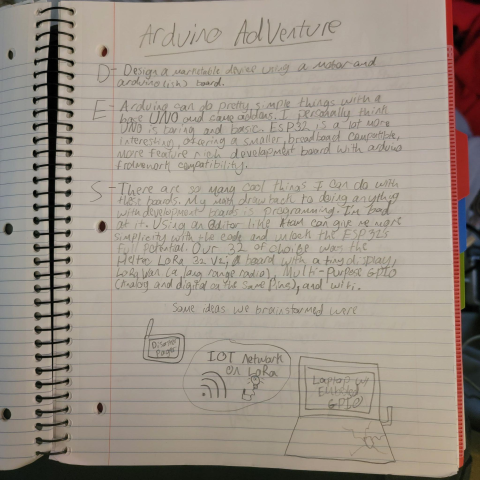 Arduino AdVenture
D - Design a marketable device using a motor and
arduino(ish) board.
E - Arduino can do pretty simple things with a
base UNO and some addons. I personally think
UNO is boring and basic. ESP32 is a lot more
interesting, offering a smaller, breadboard compatible,
more feature rich development board with arduino
framework compatibility.
S - There are so many cool things I can do with
these boards. My main draw back to doing anything
with development boards is programming. I'm bad
at it. Using an Editor like Atom can give me more
simplicity with the code and unlock the ESP32s
full potential. Our 32 of choice was the
Heltec LoRa 32 V2, a board with a tiny display,
LoRa Wan (a long range radio), Multi-purpose GPIO
(Analog and digital on the same pins), and wifi.
Some ideas we brainstormed were
Pager
IOT network
on LoRa
Laptop w/
GPIO